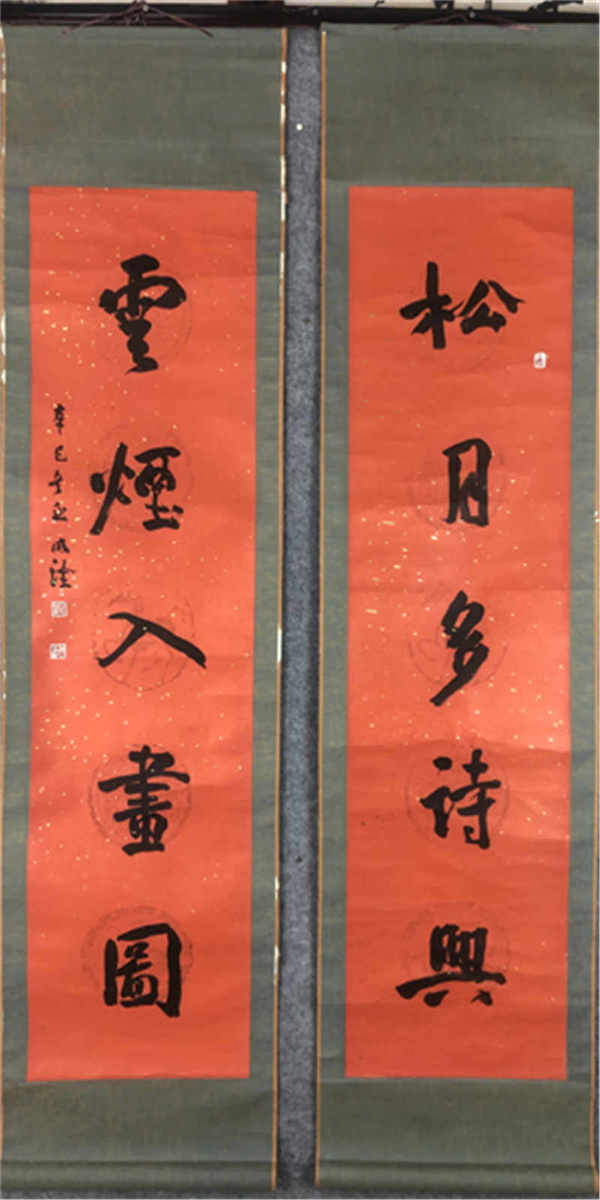 松月多詩興
雲煙入畫圖
辛巳